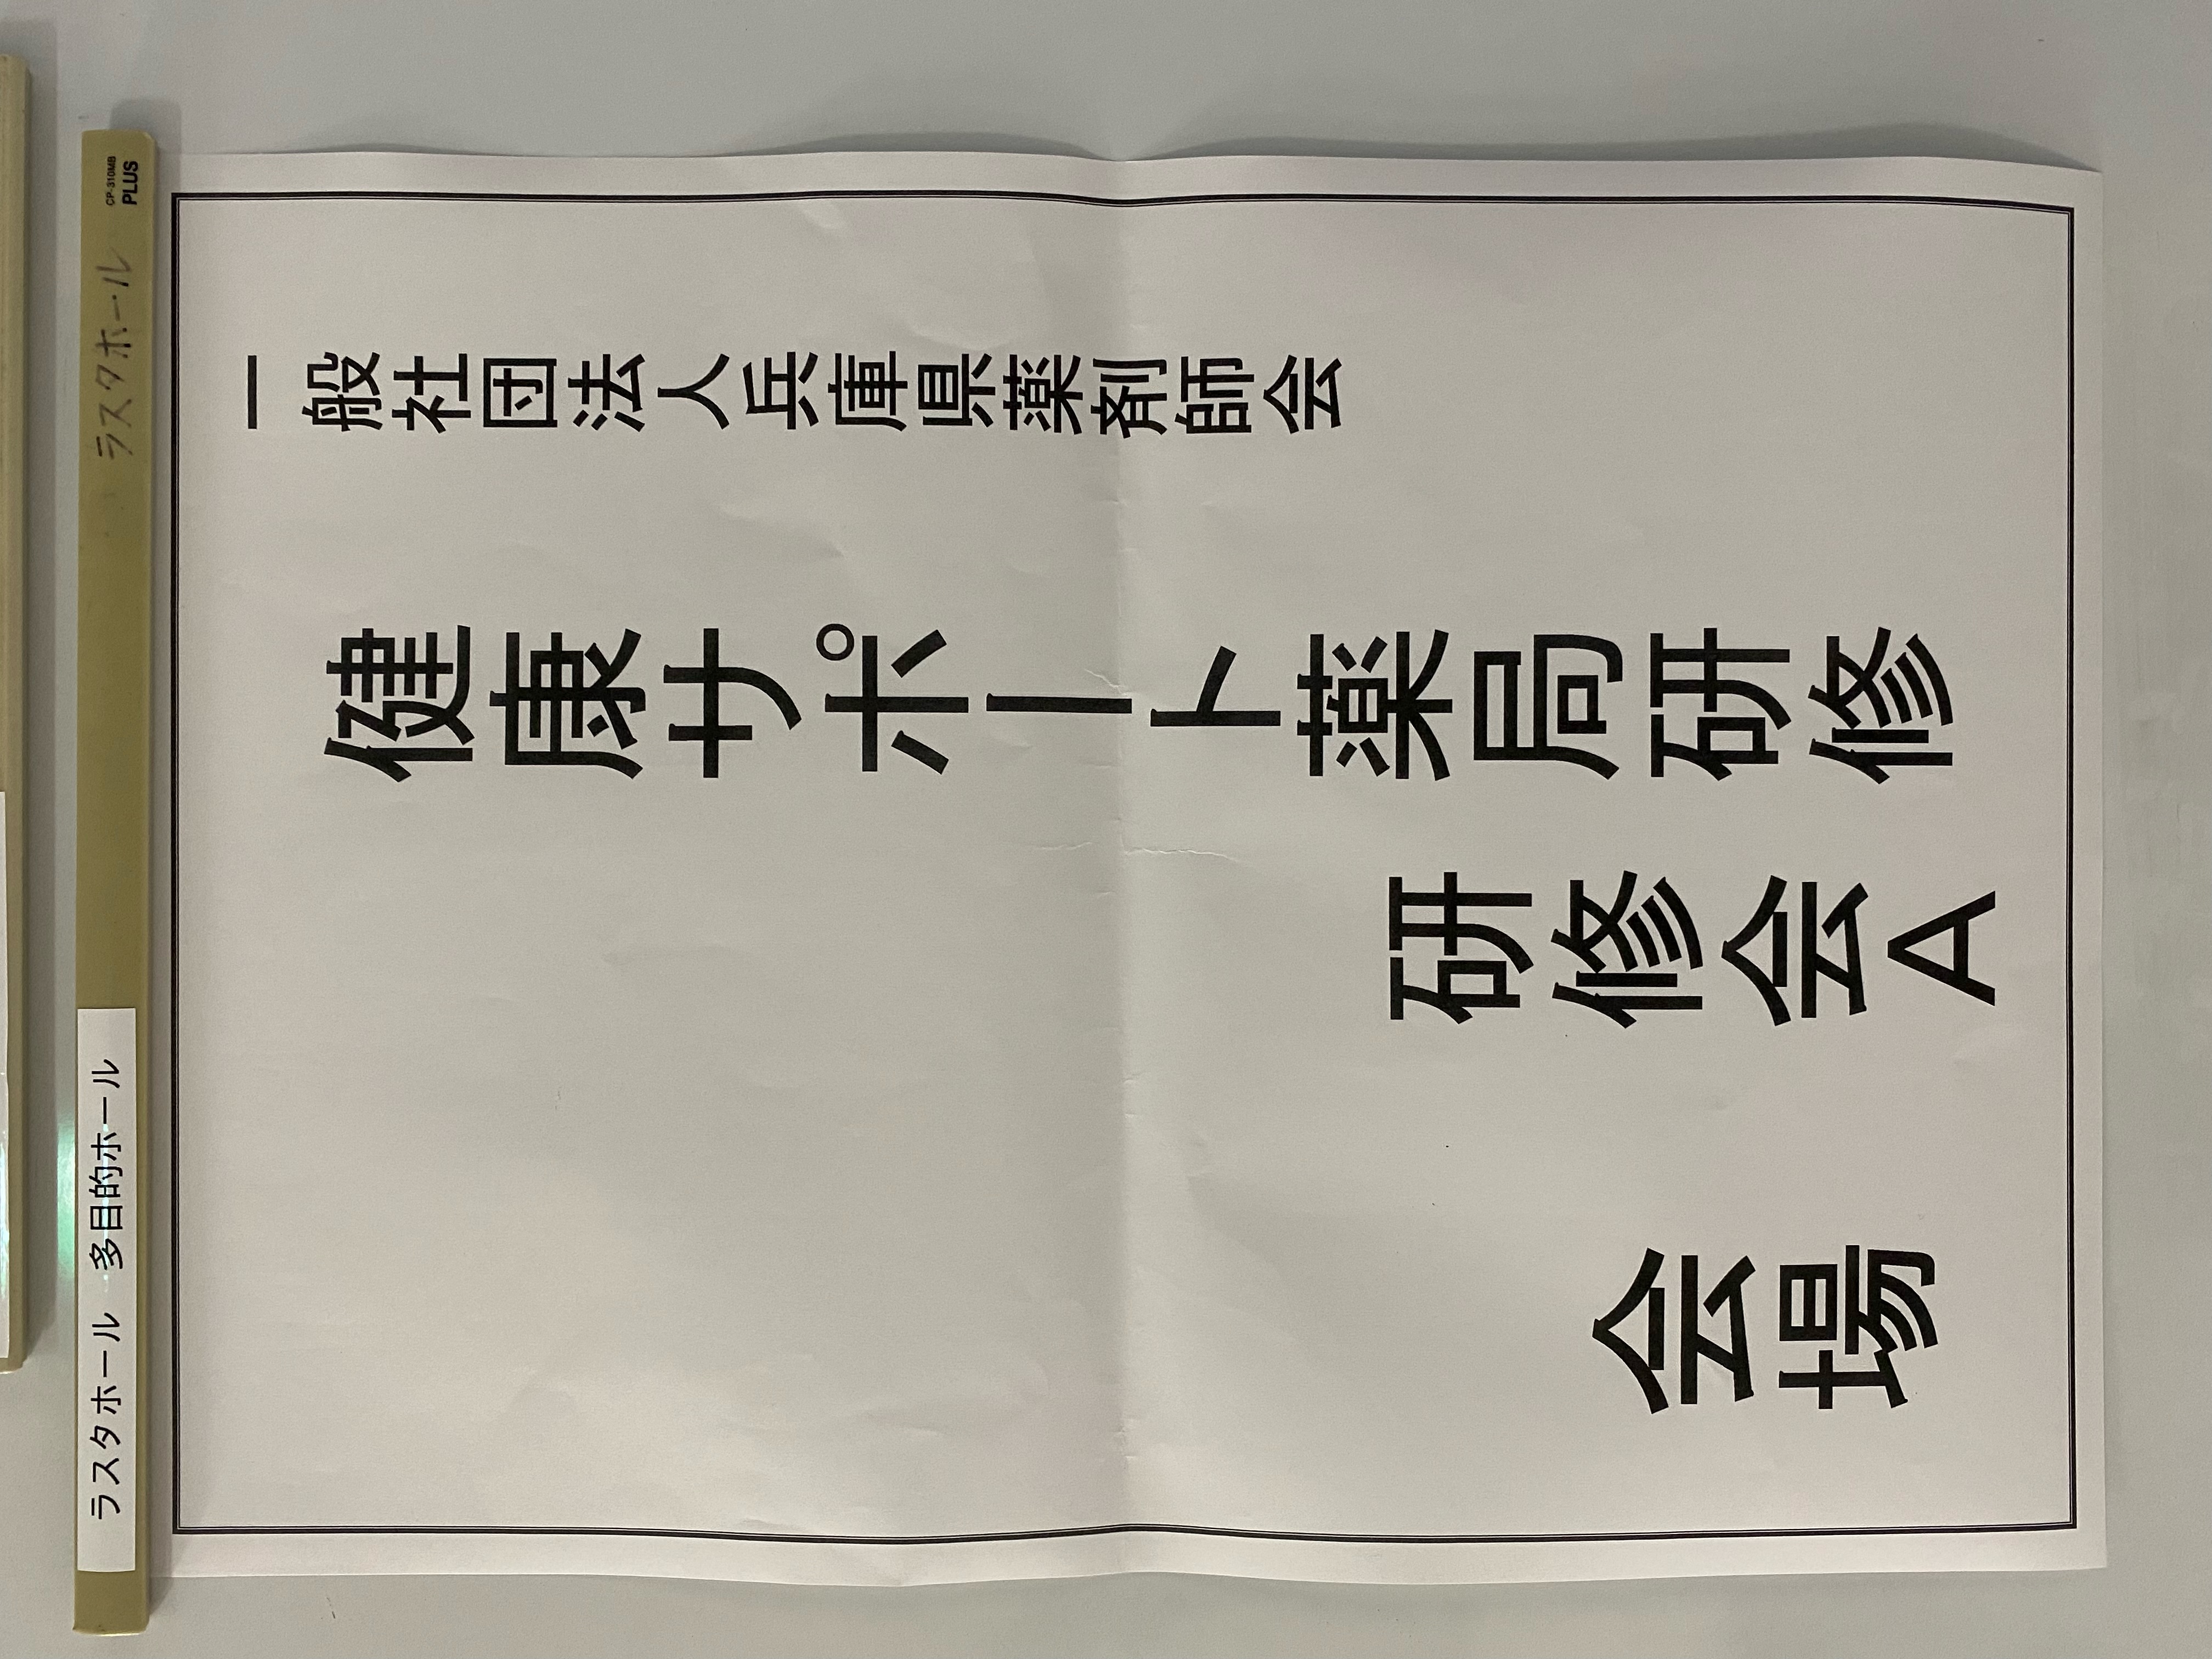 CP-310MB
PLUS
ラスタホール
ラスタホール　多目的ホール
一般社団法人兵庫県薬剤師会
健康サポート薬局研修
研修会A
会場